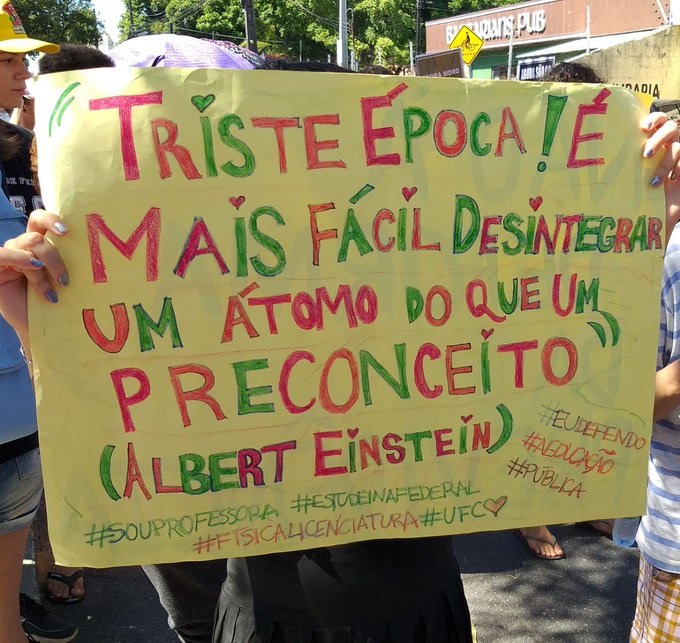 BARBARIANS PUB
" TRISTE ÉPOCA! É
MAIS FÁCIL DESINTEGRAR
UM ÁTOMO DO QUE UM
PRECONCEITO "
(ALBERT EINSTEIN)
#EUDEFENDO
#AEDUCAÇÃO
#PÚBLICA
#SOUPROFESSORA #ESTUDEINAFEDERAL
#FÍSICALICENCIATURA #UFC